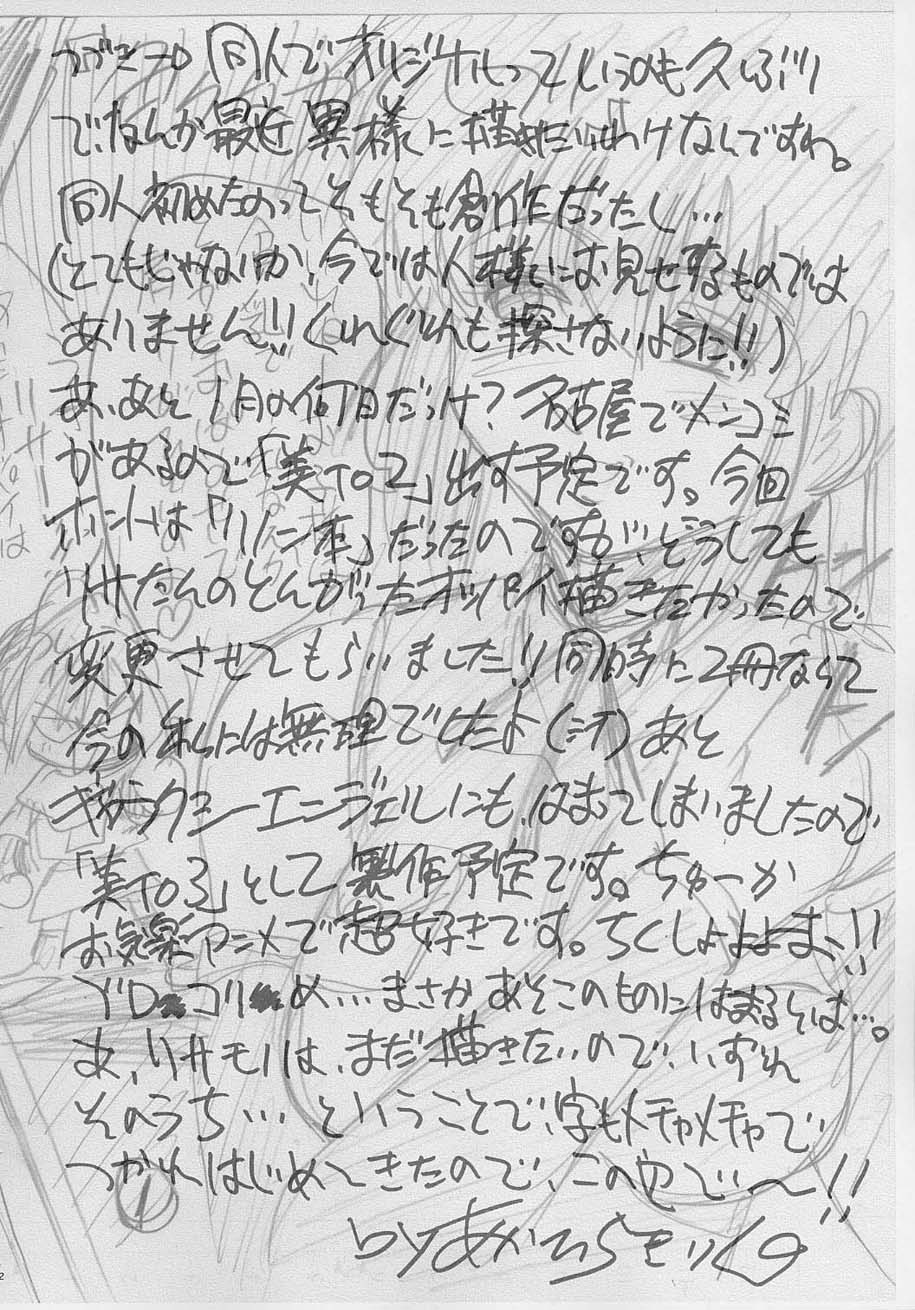 同人でオリジナルっていうのも久しぶり
でなんか最近異様に描きたいわけなんですね。
同人初めたのってそもそも創作だったし…
(とてもじゃないが、今では人様にお見せするものでは
ありません!!くれぐれも探さないように!!)
あ、あと1月の何日だっけ?名古屋でメンコミ
があるので「美to2」出す予定です。今回
ホントは「リノン本」だったのですが、どうしても
リサたんのとんがったオッパイ描きたかったので
変更させてもらいました!!同時に2冊なんて
今の私には無理でしたよ(汗)あと
ギャラクシーエンジェルにも、はまってしまいましたので
「美to3」として製作予定です。ちゅーか
お気楽アニメで超好きです。ちくしょよょまぃ!!
め…まさかあそこのものにはまるとは…。
あ、リサモノは、まだ描きたいので、いずれ
そのうち…ということで、字もメチャメチャで
つかれはじめてきたので、この辺で〜!!
by